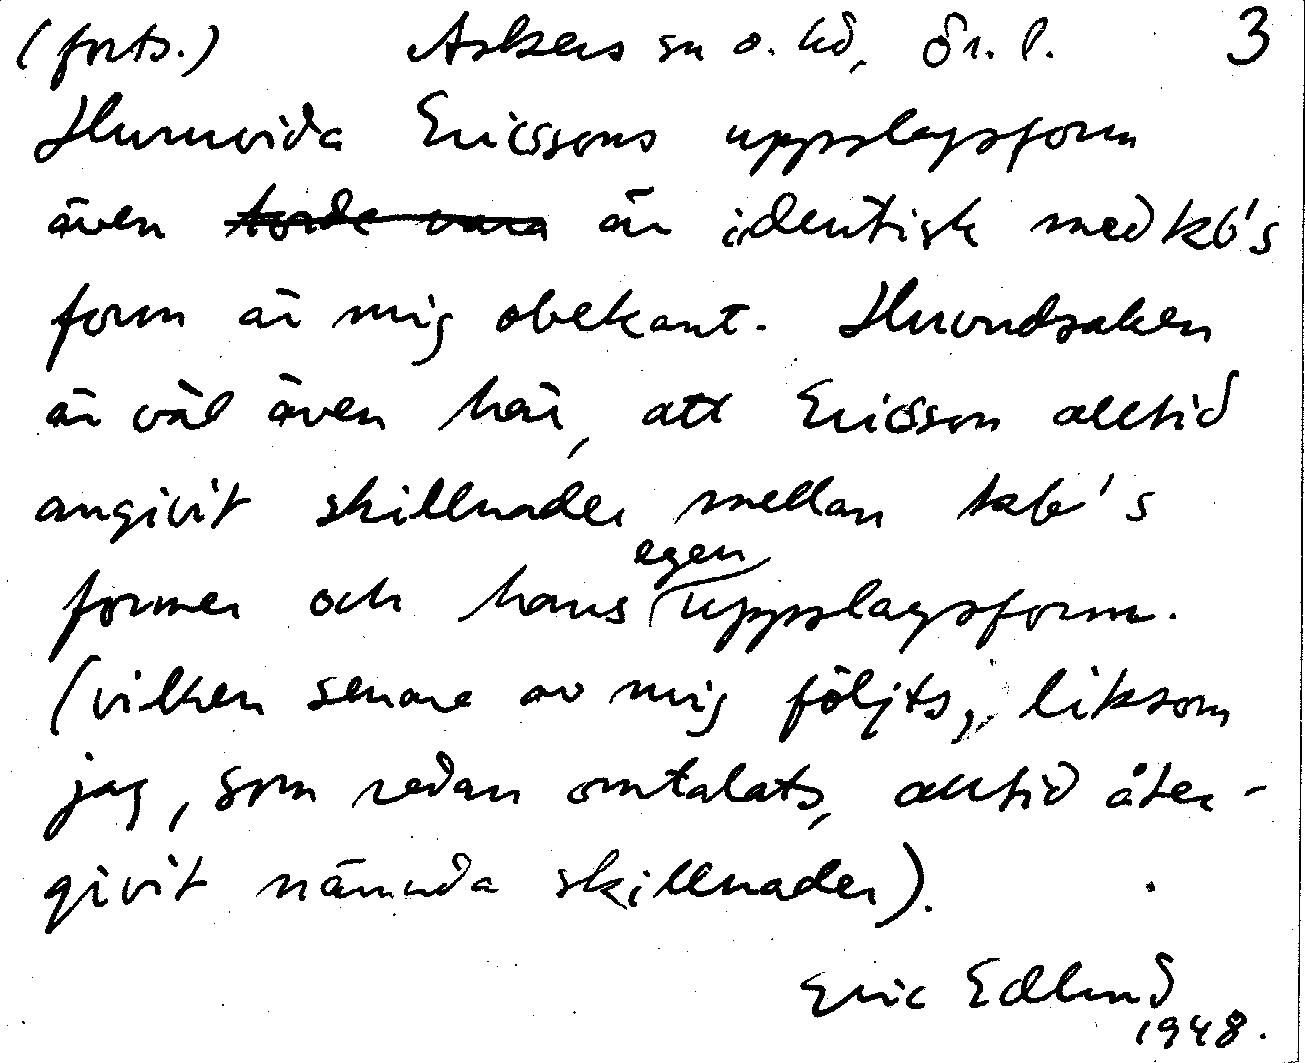 (forts.) Askers sn o. hd, Ör. l. 3
Huruvida Ericssons uppslagsform
även torde vara är identisk med kb's
form är mig obekant. Huvudsaken
är väl även här, att Ericsson alltid
angivit skillnader mellan kb's
egen
former och hans uppslagsform.
(vilken senare av mig följts, liksom
jag, som redan omtalats, alltid åter-
givit nämnda skillnader).
Eric Edlund
1948.